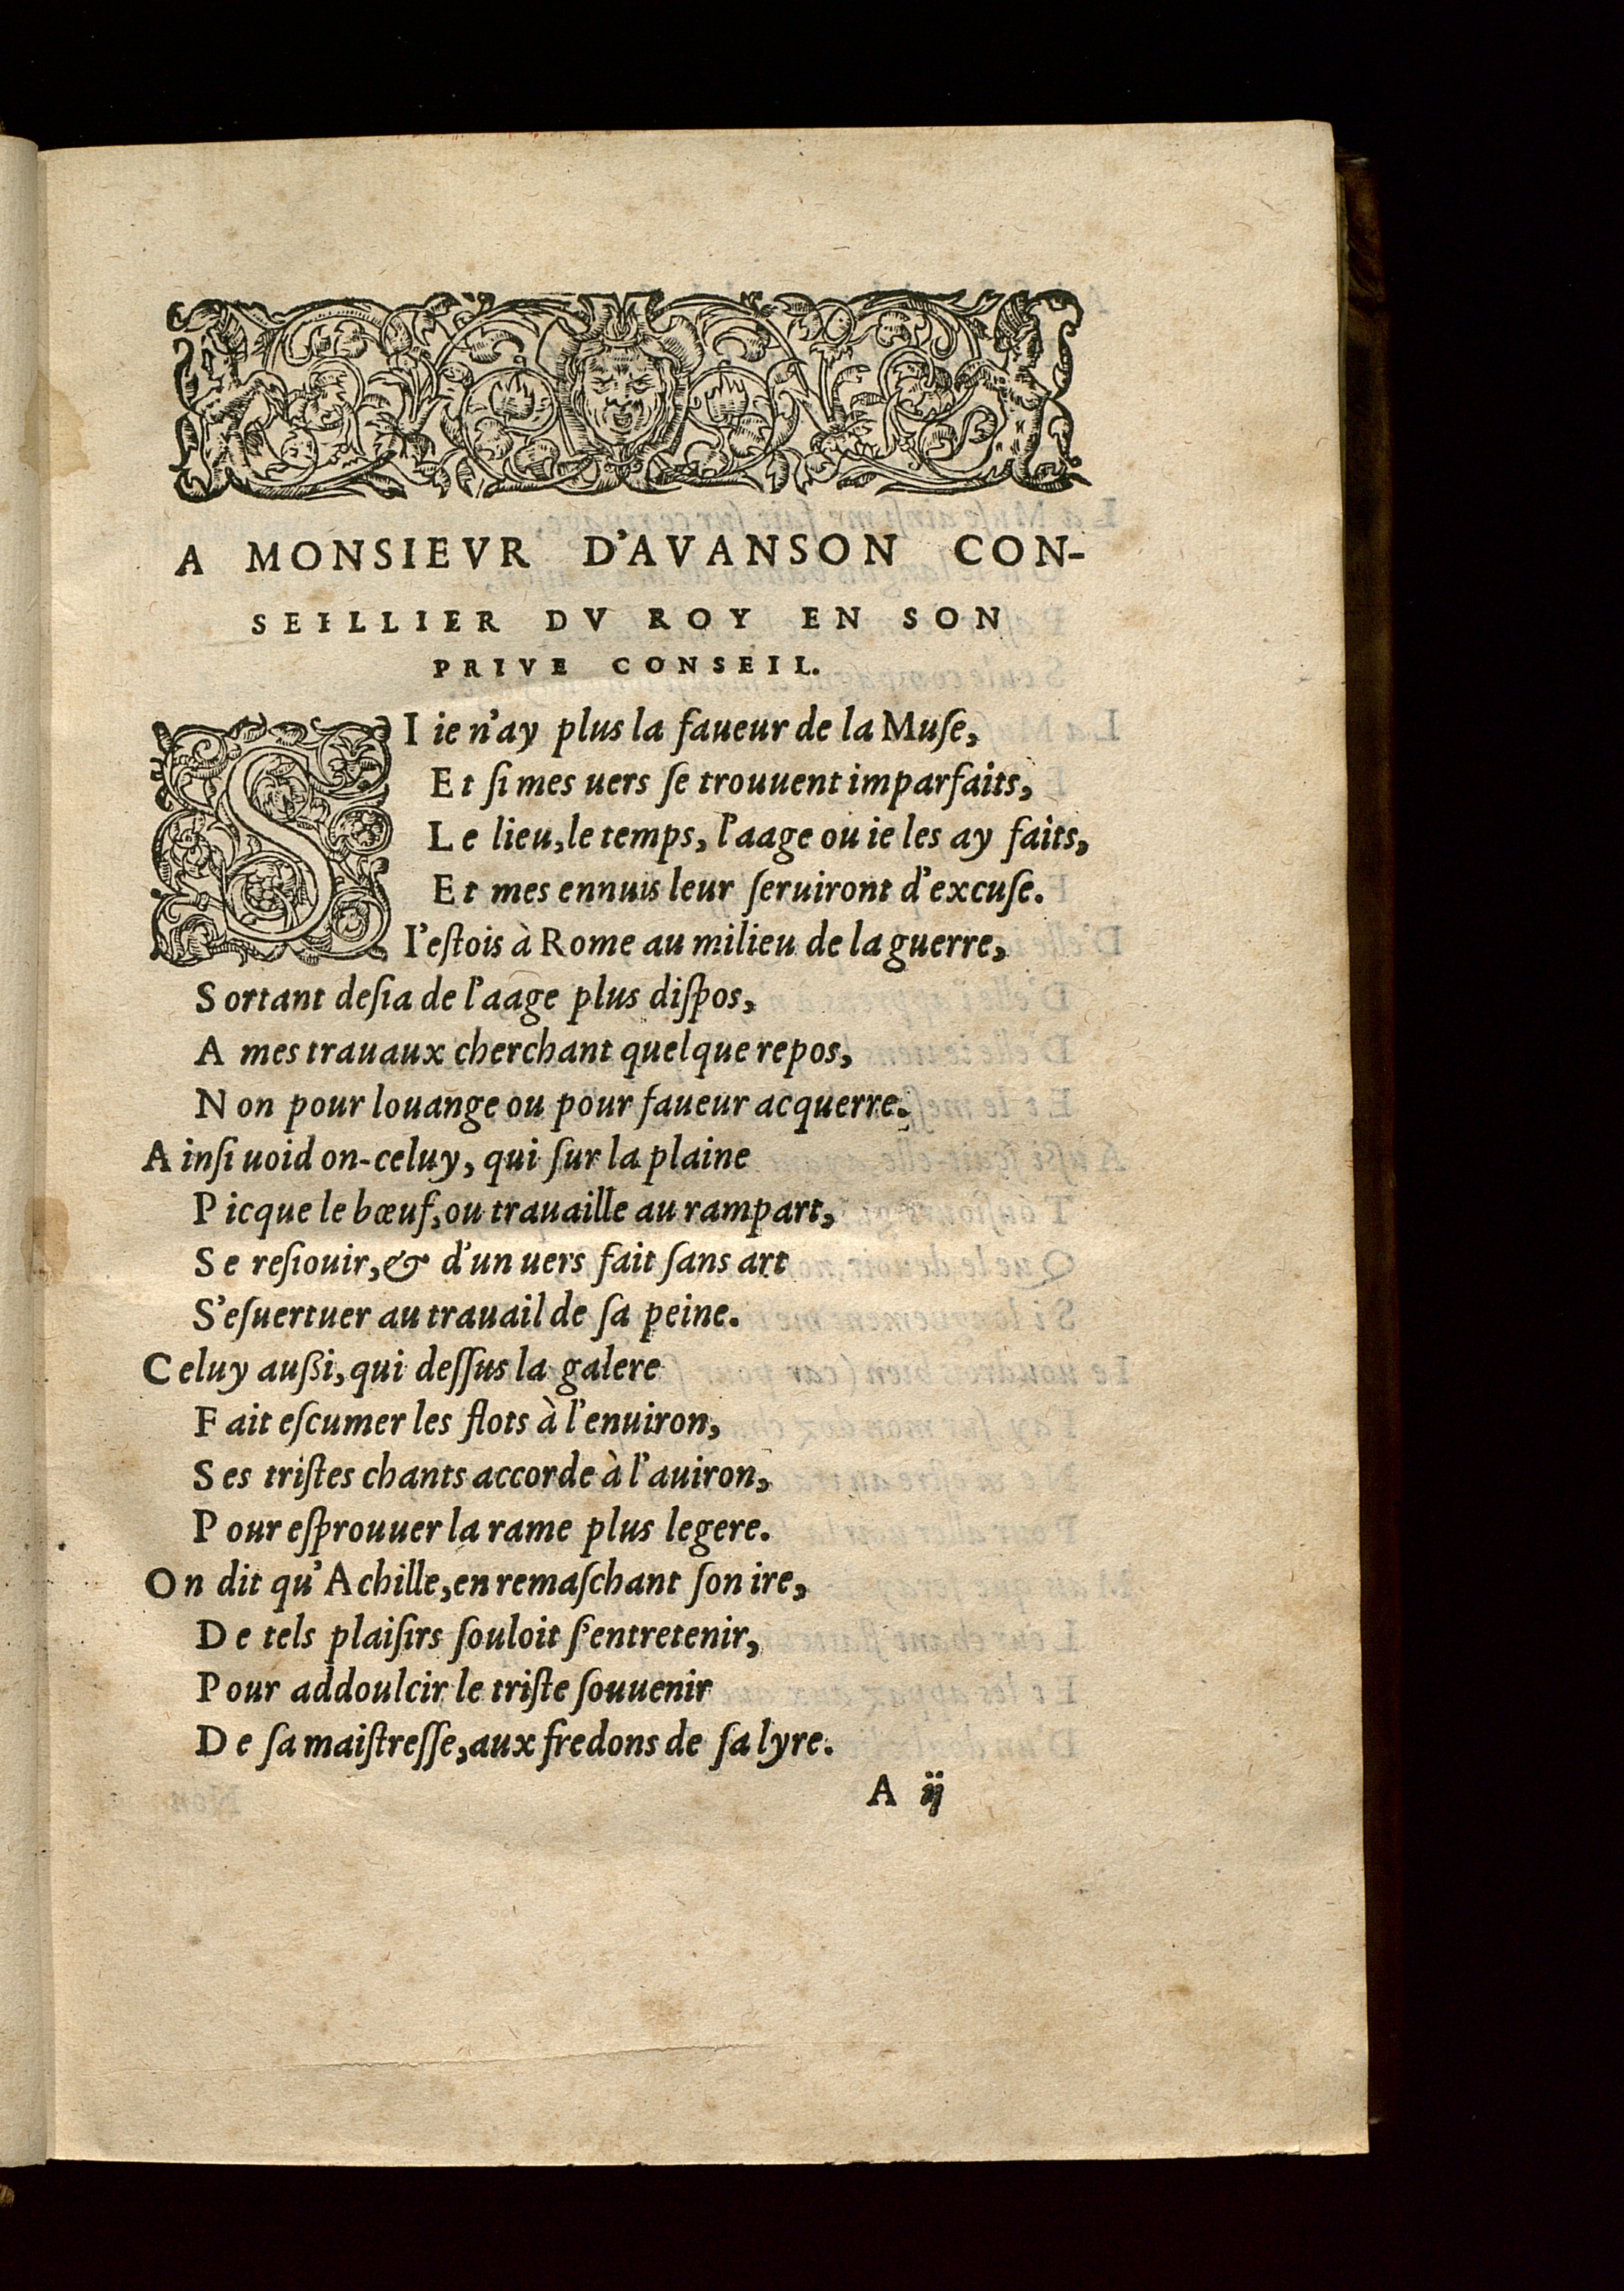 A MONSIEVR D'AVANSON CON-
SEILLIER DV ROY EN SON
PRIVE CONSEIL.
SI ie n'ay plus la faueur de la Muſe,
Et ſi mes uers ſe trouuent imparfaits,
Le lieu, le temps, l'aage ou ie les ay faits,
Et mes ennuis leur ſeruiront d'excuſe.
I'eſtois à Rome au milieu de la guerre,
Sortant deſia de l'aage plus diſpos,
A mes trauaux cherchant quelque repos,
Non pour louange ou pour faueur acquerre.
Ainſi uoid on-celuy, qui ſur la plaine
Picque le bœuf, ou trauaille au rampart,
Se reſiouir, & d'un uers fait ſans art
S'eſuertuer au trauail de ſa peine.
Celuy außi, qui deſſus la galere
Fait eſcumer les flots à l'enuiron,
Ses triſtes chants accorde à l'auiron,
Pour eſprouuer la rame plus legere.
On dit qu'Achille, en remaſchant ſon ire,
De tels plaiſirs ſouloit ſ'entretenir,
Pour addoulcir le triſte ſouuenir
De ſa maiſtreſſe, aux fredons de ſa lyre.
A ij